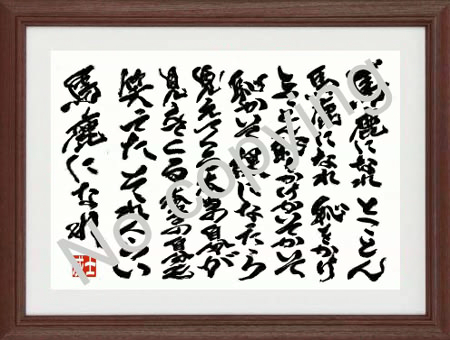 馬鹿になれ とことん
馬鹿になれ 恥をかけ
とことん恥をかけ かいてかいて
恥かいて裸になったら
見えてくる本当の自分が
見えてくる本当の自分も
笑ってた それくらい
馬鹿になれ
No copying